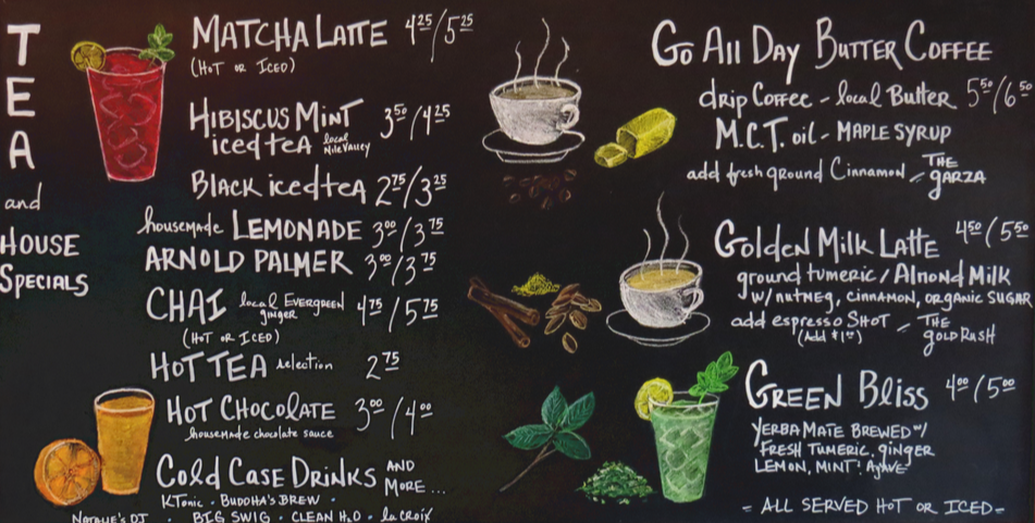 TEA
and
HOUSE
SPECIALS
MATCHA LATTE 4 25/5 25
(HOT OR ICED)
HIBISCUS MINT 3 50/4 25
iced tea local Nile Valley
BLACK iced tea 2 75/3 25
housemade LEMONADE 3 00/3 75
ARNOLD PALMER 3 00/3 75
CHAI local EVERGREEN ginger 4 75/5 75
(HOT OR ICED)
HOT TEA selection 2 75
HOT CHOCOLATE 3 00/4 00
housemade chocolate sauce
Cold CASE DRINKS AND MORE ...
KTonic • BUDDHA'S BREW •
NATALIE'S OJ • BIG SWIG • CLEAN H2O • la CROIX
GO ALL DAY BUTTER COFFEE
drip COFFEE - local BUTTER 5 50/6 50
M.C.T. oil - MAPLE SYRUP
add fresh ground Cinnamon - THE GARZA
Golden MILK LATTE 4 50/5 50
ground tumeric / Almond MILK
w/ NUTMEG, CINNAMON, ORGANIC SUGAR
add espresso SHOT - THE GOLD RUSH
(Add $1 00)
GREEN BLISS 4 00/5 00
YERBA MATE BREWED w/
FRESH TUMERIC, GINGER
LEMON, MINT! AGAVE
- ALL SERVED HOT OR ICED -